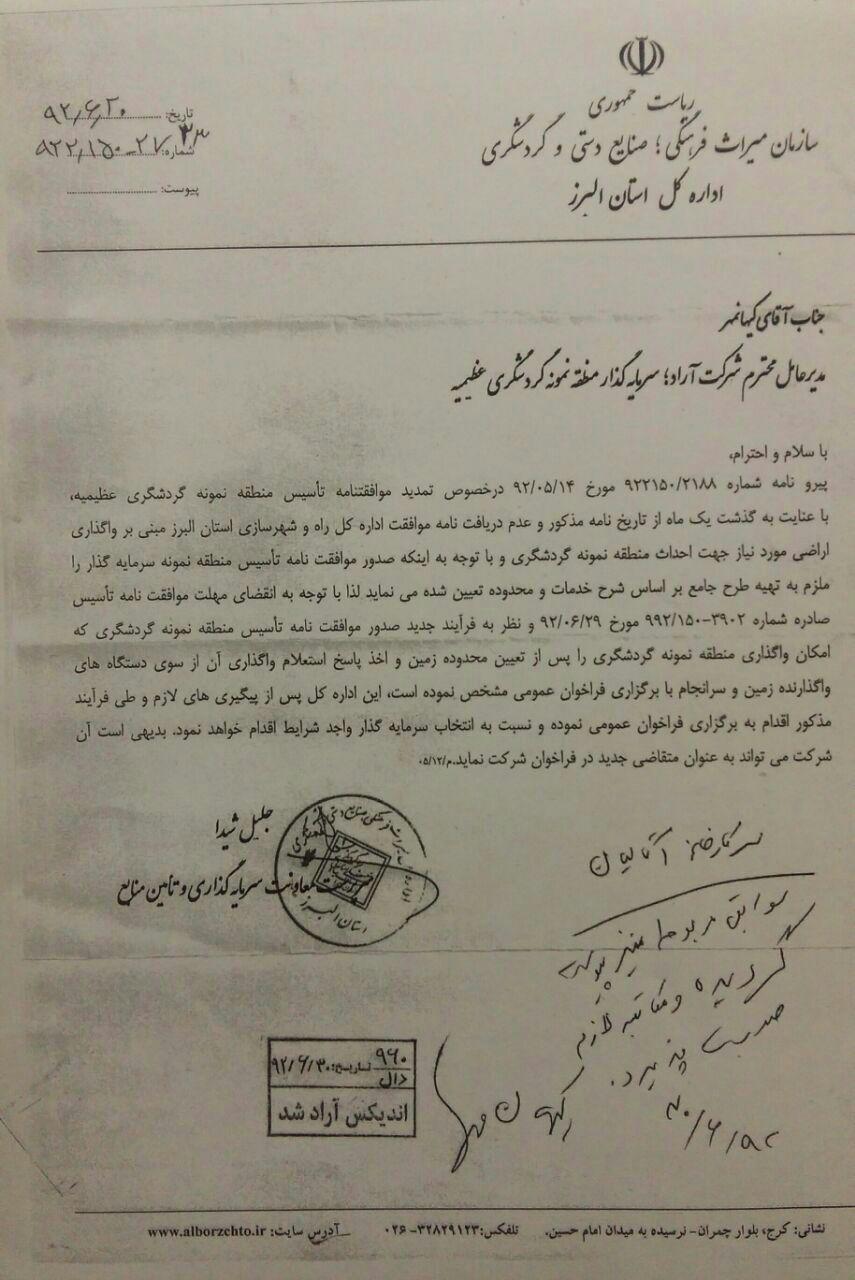 ریاست جمهوری
سازمان میراث فرهنگی؛ صنایع دستی و گردشگری
اداره کل استان البرز
تاریخ: ۹۲/۶/۲۰
شماره:
پیوست:
جناب آقای کیهانمهر
مدیرعامل محترم شرکت آراد؛ سرمایه گذار منطقه نمونه گردشگری عظیمیه
با سلام و احترام،
پیرو نامه شماره ۹۲۲۱۵۰/۲۱۸۸ مورخ ۹۲/۰۵/۱۴ درخصوص تمدید موافقتنامه تأسیس منطقه نمونه گردشگری عظیمیه،
با عنایت به گذشت یک ماه از تاریخ نامه مذکور و عدم دریافت نامه موافقت اداره کل راه و شهرسازی استان البرز مبنی بر واگذاری
اراضی مورد نیاز جهت احداث منطقه نمونه گردشگری و با توجه به اینکه صدور موافقت نامه تأسیس منطقه نمونه سرمایه گذار را
ملزم به تهیه طرح جامع بر اساس شرح خدمات و محدوده تعیین شده می نماید لذا با توجه به انقضای مهلت موافقت نامه تأسیس
صادره شماره ۳۹۰۲-۹۹۲/۱۵۰ مورخ ۹۲/۰۶/۲۹ و نظر به فرآیند جدید صدور موافقت نامه تأسیس منطقه نمونه گردشگری که
امکان واگذاری منطقه نمونه گردشگری را پس از تعیین محدوده زمین و اخذ پاسخ استعلام واگذاری آن از سوی دستگاه های
واگذارنده زمین و سرانجام با برگزاری فراخوان عمومی مشخص نموده است، این اداره کل پس از پیگیری های لازم و طی فرآیند
مذکور اقدام به برگزاری فراخوان عمومی نموده و نسبت به انتخاب سرمایه گذار واجد شرایط اقدام خواهد نمود. بدیهی است آن
شرکت می تواند به عنوان متقاضی جدید در فراخوان شرکت نماید.م/۰۵/۱۲
جلیل شیدا
معاونت سرمایه گذاری و تامین منابع
استان البرز
سرکار خانم آقالیان
سوابق مربوط نیز
گردیده و مکاتبه لازم
صورت پذیرد.
۹۲/۶/۳۰
۹۶۰
دال
تاریخ: ۹۲/۶/۳۰
اندیکس آراد شد
نشانی: کرج، بلوار چمران- نرسیده به میدان امام حسین. تلفکس: ۳۲۸۲۹۱۲۳-۰۲۶ آدرس سایت: www.alborzchto.ir